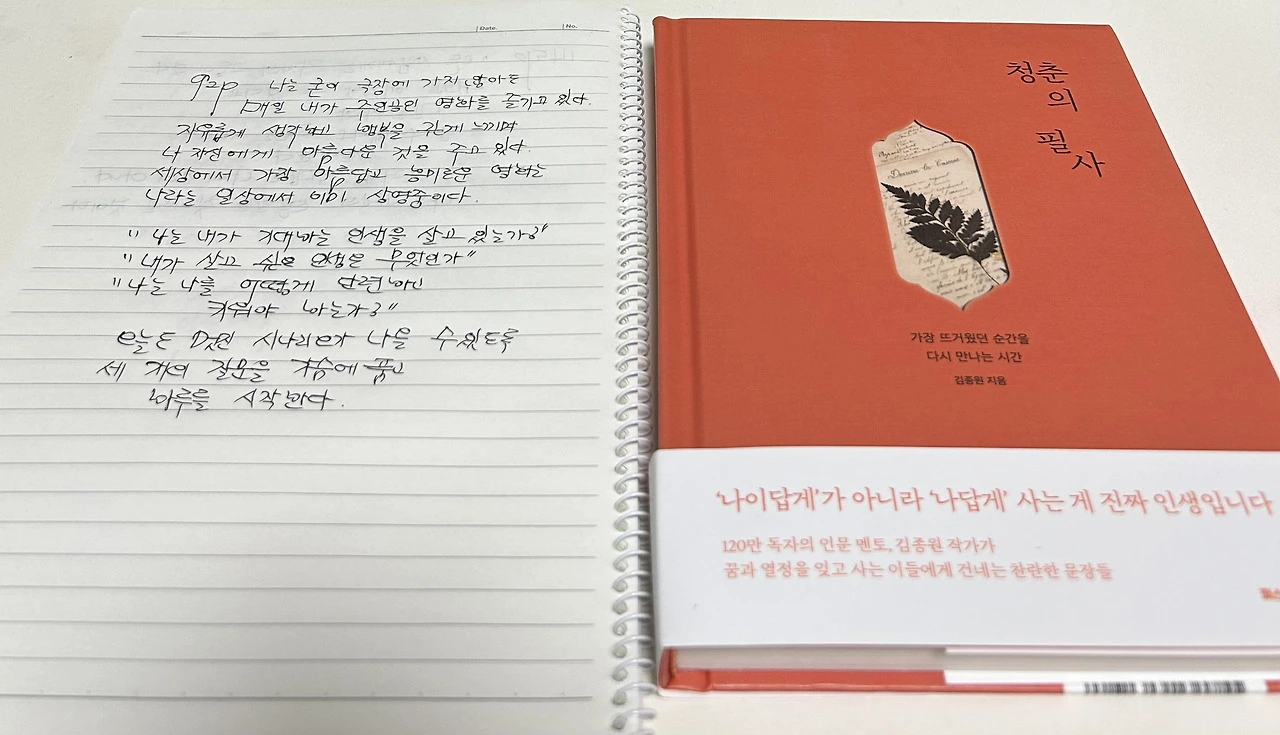 Date.
No.
92p 나는 굳이 극장에 가지 않아도
매일 내가 주연인 영화를 즐기고 있다.
자유롭게 생각하며 행복을 느끼며
나 자신에게 아름다운 것을 주고 있다.
세상에서 가장 아름답고 흥미로운 영화는
나라는 일상에서 이미 상영중이다.
"나는 내가 기대하는 인생을 살고 있는가?"
"내가 살고 싶은 인생은 무엇인가"
"나는 나를 어떻게 단련하고
키워야 하는가?"
오늘도 멋진 시나리오가 나올 수 있도록
세 가지 질문을 가슴에 품고
하루를 시작한다.
청춘
의
필
사
가장 뜨거웠던 순간을
다시 만나는 시간
김종원 지음
'나이답게'가 아니라 '나답게' 사는 게 진짜 인생입니다
120만 독자의 인문 멘토, 김종원 작가가
꿈과 열정을 잊고 사는 이들에게 건네는 찬란한 문장들